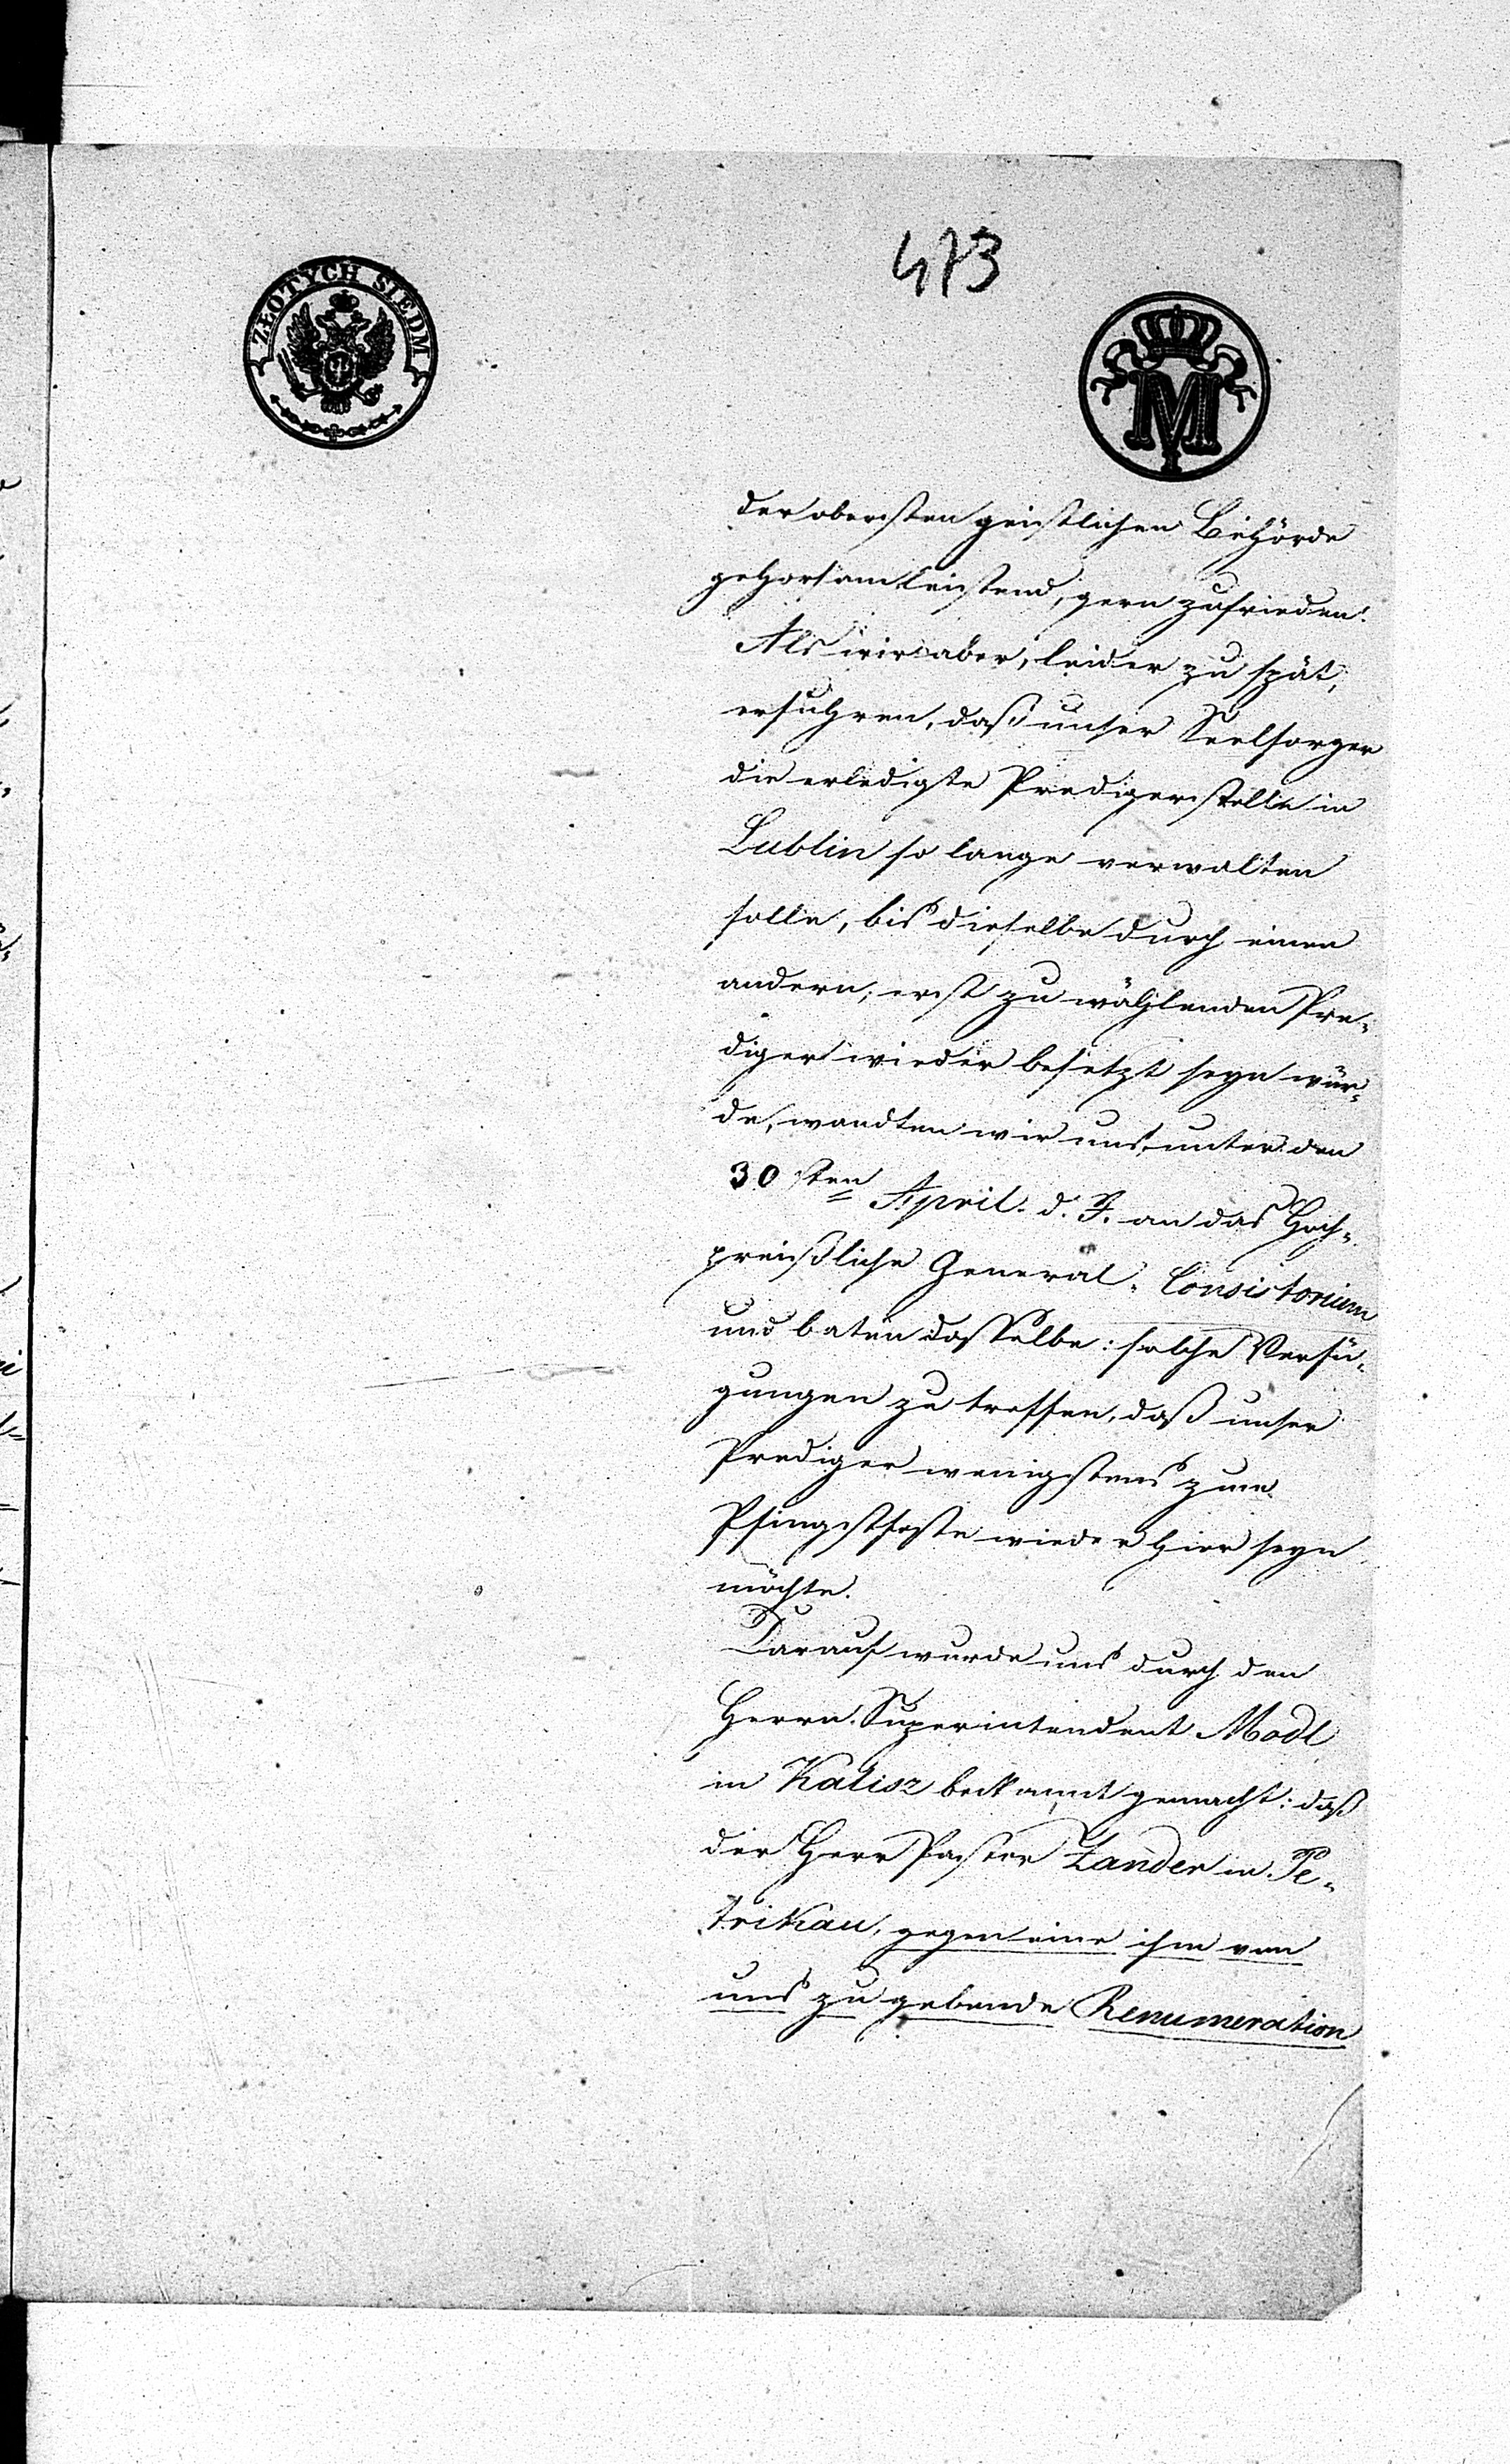 473
ZŁOTYCH SIEDM
M
I
der obersten geistlichen Behörde
gehorsam leistend, gern zufrieden.
Als wir aber, leider zu spät,
erfuhren, daß unser Seelsorger
die erledigte Predigerstelle in
Lublin so lange verwalten
solle, bis dieselbe durch einen
andern, erst zu wählenden Pre-
diger wieder besetzt seyn wür-
de, wandten wir uns unter den
30sten April d. J. an das Hoch-
preißliche General-Consistorium
und baten dasselbe: solche Verfü-
gungen zu treffen, daß unser
Prediger wenigstens zum
Pfingstfeste wieder hier seyn
möchte.
Darauf wurde uns durch den
Herrn Superintendent Modl
in Kalisz bekannt gemacht: daß
der Herr Pastor Zander in Pe-
trikau, gegen eine ihm von
uns zu gebende Renumeration